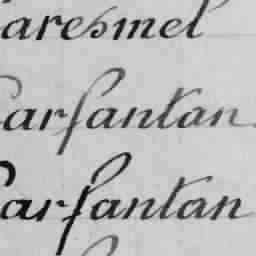 Caresmel
Carfantan
Carfantan